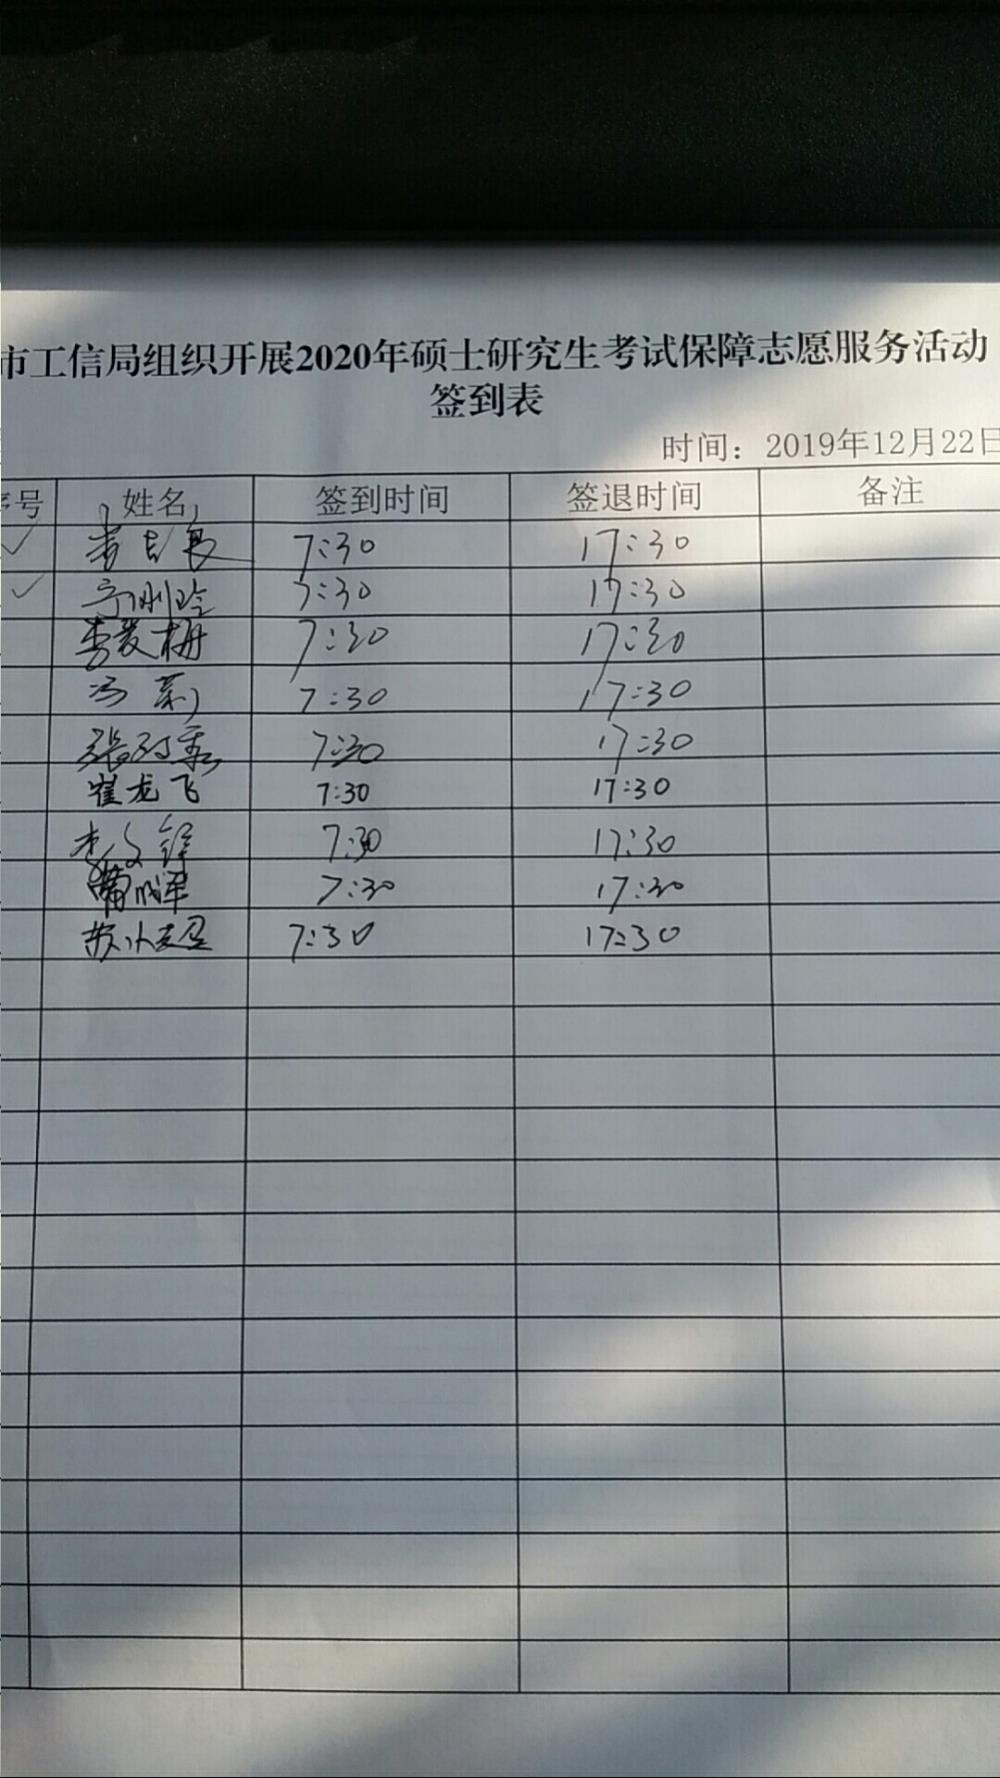 市工信局组织开展2020年硕士研究生考试保障志愿服务活动
签到表
时间：2019年12月22日
序号 姓名 签到时间 签退时间 备注
7:30 17:30
7:30 17:30
李爱梅 7:30 17:30
冯莉 7:30 17:30
7:30 17:30
崔龙飞 7:30 17:30
李文锋 7:30 17:30
7:30 17:30
7:30 17:30